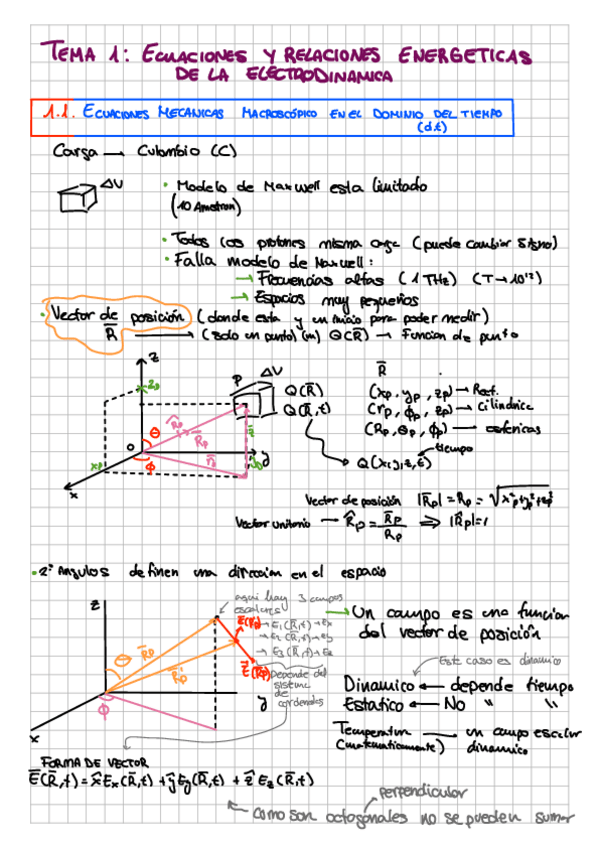 TEMA 1: ECUACIONES Y RELACIONES ENERGETICAS
DE LA ELECTRODINAMICA
1.1. ECUACIONES MECANICAS MACROSCÓPICO EN EL DOMINIO DEL TIEMPO
(d.t)
Carga → Culombio (C)
ΔV
• Modelo de Maxwell esta limitado
(10 Amstron)
• Todos los protones misma carga (puede cambiar signo)
• Falla modelo de Maxwell:
→ Frecuencias altas (1 THz) (T→10¹²)
→ Espacios muy pequeños
• Vector de posición (donde esta y un inicio para poder medir)
R̅ → (solo un punto) (m) Q(R̅) → Funcion de punto
z
zp
P
ΔV
Q(R̅)
Q(R̅,t)
R̅
(xp, yp, zp) → Rect.
(rp, ϕp, zp) → Cilindrica
(Rp, θp, ϕp) → esfericas
Q(x,y,z,t) tiempo
R̂p
R̅p
θ
O
ϕ
xp
x
y
Vector de posición |R̅p| = Rp = √x²p+y²p+z²p
Vector unitario → R̂p = R̅p/Rp ⇒ |R̂p|=1
• 2 Angulos definen una dirección en el espacio
aqui hay 3 campos
escalares
→ E1(R̅,t) → Ex
→ E2(R̅,t) → Ey
→ E3(R̅,t) → Ez
Depende del
sistema
de
cordenadas
z
θ
R̅p
ϕ
x
y
→ Un campo es una funcion
del vector de posición
Este caso es dinamico
Dinamico ← depende tiempo
Estatico ← No " "
Temperatura → un campo escalar
(matematicamente) dinamico
FORMA DE VECTOR
E̅(R̅,t) = x̂ Ex(R̅,t) + ŷ Ey(R̅,t) + ẑ Ez(R̅,t)
perpendicular
← como son octogonales no se pueden sumar